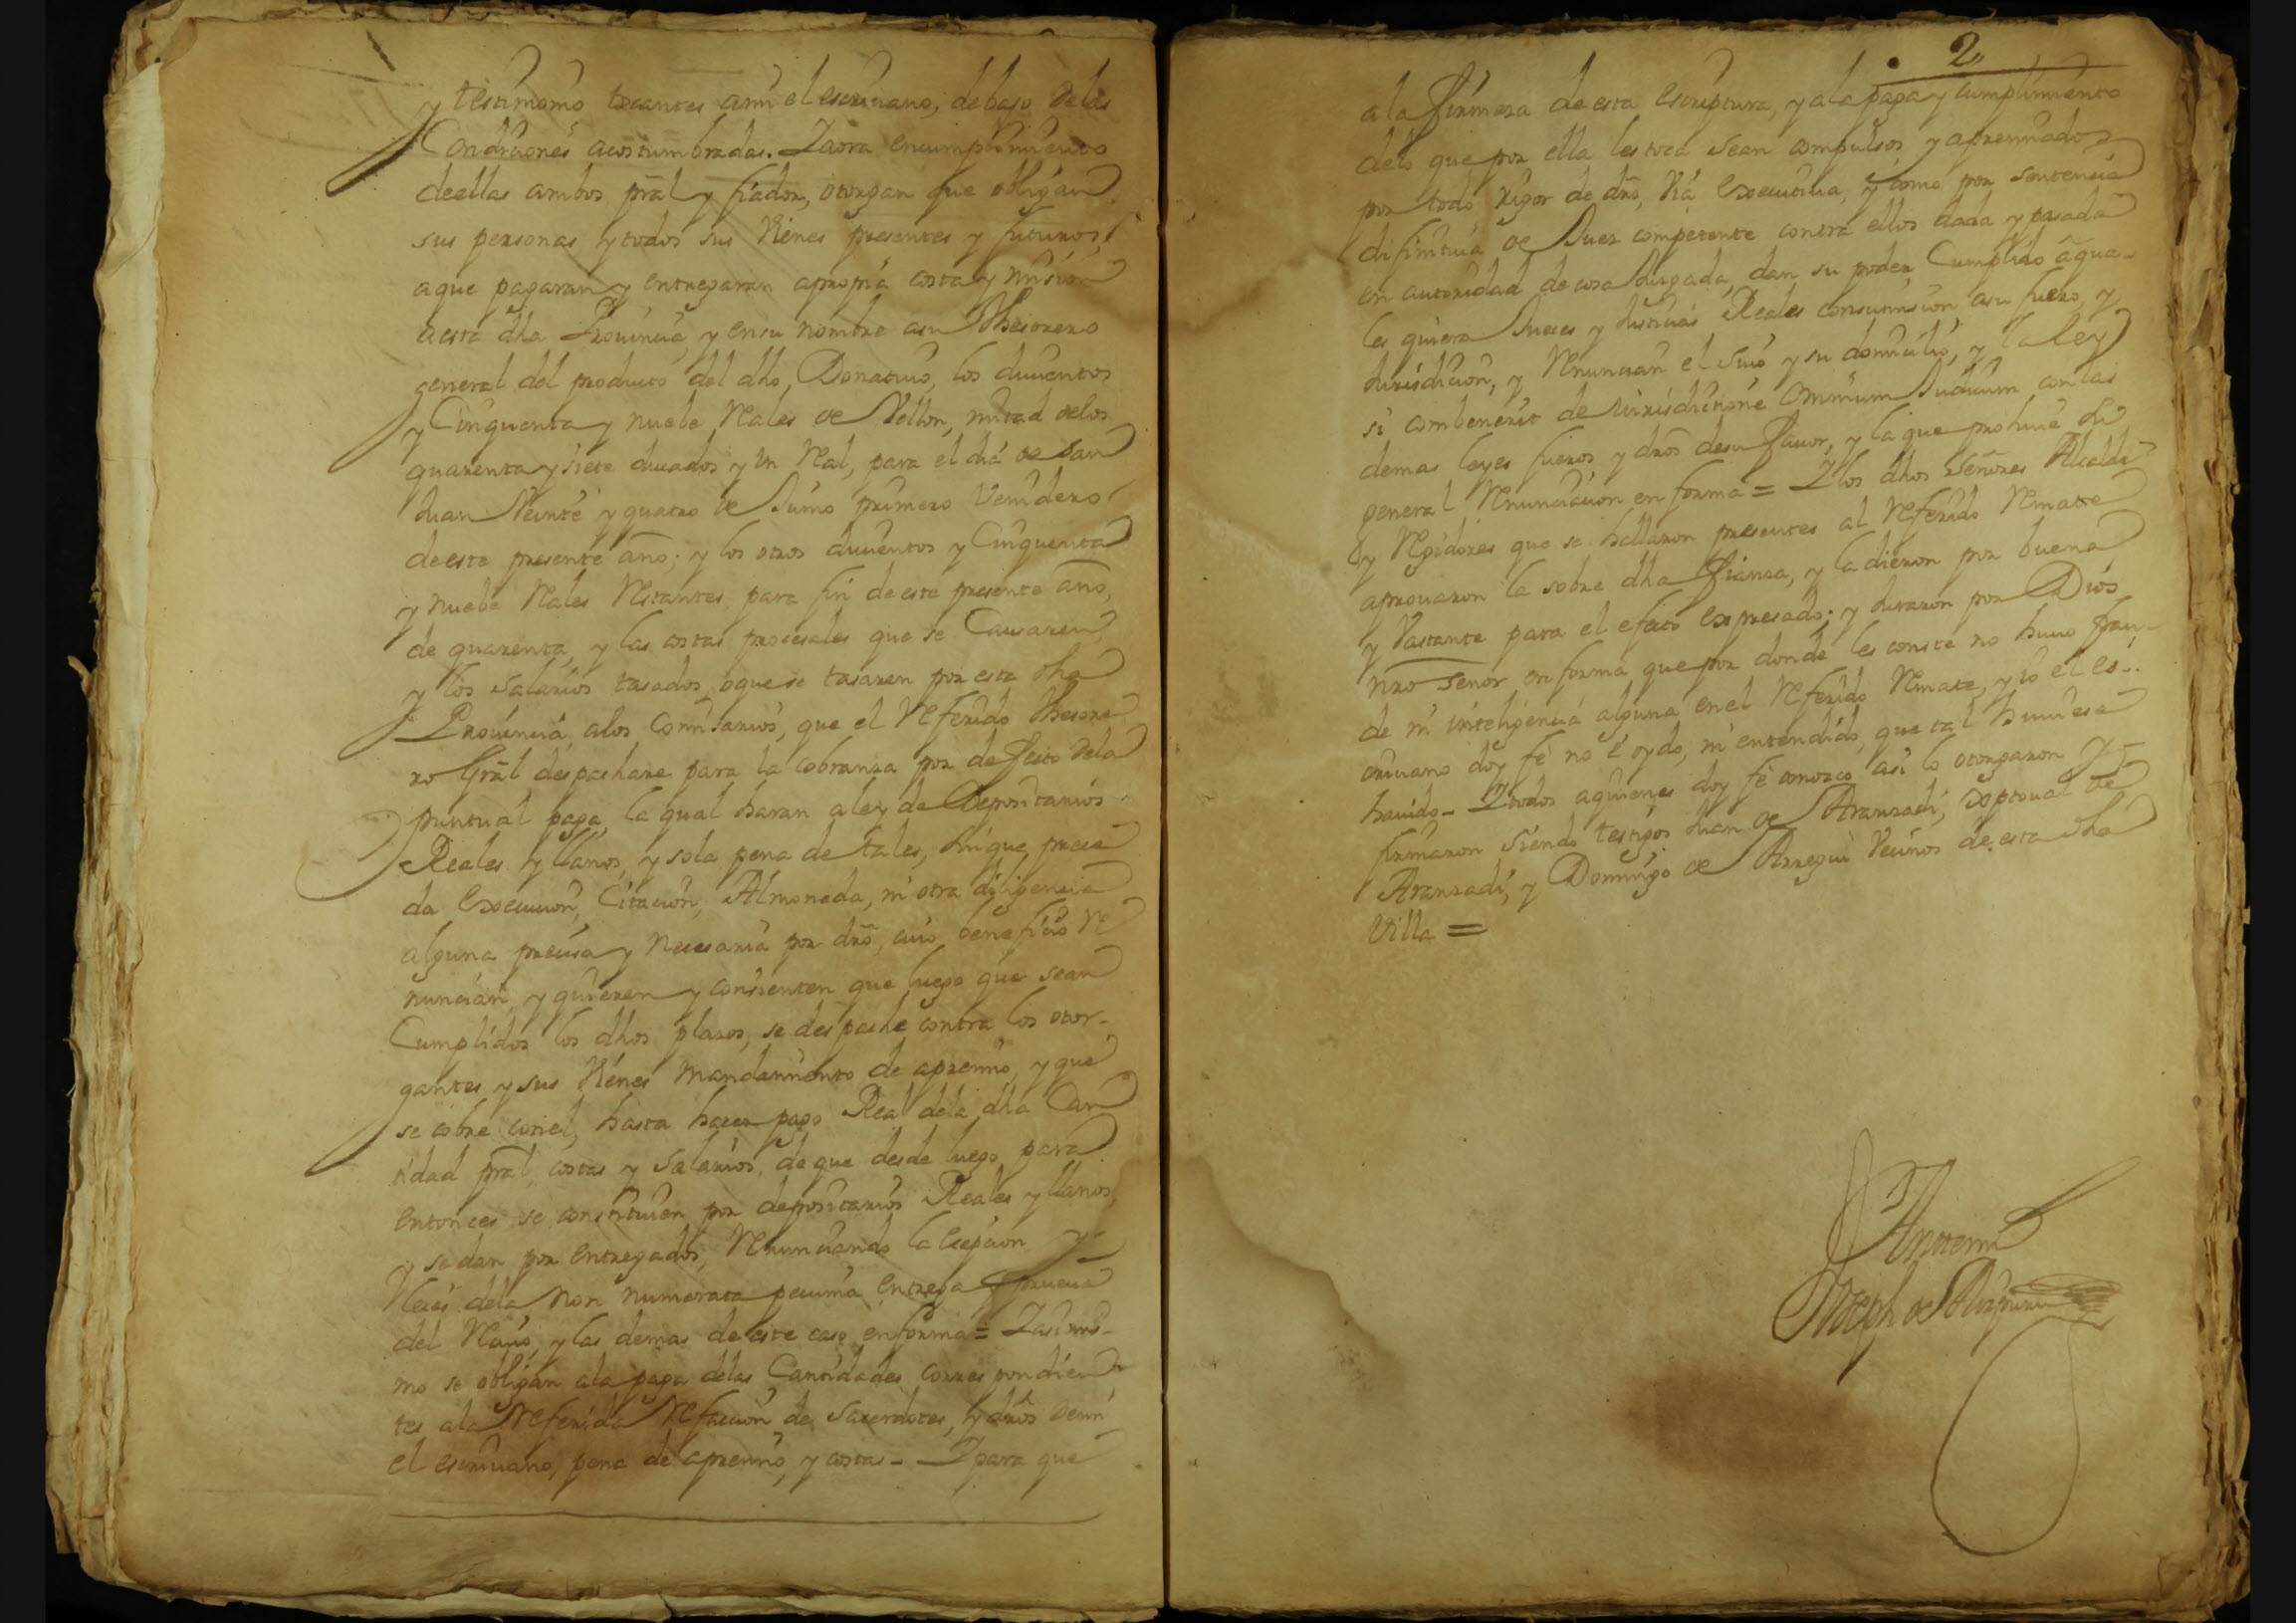 y testimonio tocantes a mi el escriuano, debaso delas
Condiciones acostumbradas. Y aora en cumplimiento
de ellas ambos pral y fiador, otorgan que obligan
sus personas y todos sus Vienes presentes y futuros,
a que pagaran y entregaran a propia costa y mision
a esta dha Prouincia, y en su nombre a su Thesorero
general del producto del dho Donatiuo, los ducientos
y Cinquenta y nuebe Rales de Vellon, mitad delos
quarenta y siete ducados y un Ral, para el dia de san
Juan Veinte y quatro de Junio primero Venidero
de este presente año; y los otros ducientos y Cinquenta
y nuebe Rales Restantes para fin de este presente año,
de quarenta, y las costas procesales que se Causaren,
y los salarios tasados, o que se tasaren por esta dha
Prouincia, alos Comisarios, que el Referido Thesore
ro Gral despachare para la cobranza por defecto dela
puntual paga, la qual haran a ley de Depositarios
Reales y llanos, y sola pena de tales, sin que prece
da Execucion, Citacion, Almoneda, ni otra diligencia
alguna precisa y Necesaria por dro, cuio beneficio Re
nuncian, y quieren y consienten que luego que sean
Cumplidos los dhos plazos, se despache contra los otor-
gantes y sus Vienes Mandamiento de apremio, y que
se cobre con el, hasta hacer pago Real dela dha Can
tidad pral, costas y salarios, de que desde luego para
entonces se constituien por depositarios Reales y llanos,
y se dan por entregados, Renunciando la Exepcion y
Leies dela Non numerata pecunia, entrega y prueua
del Reciuo, y las demas de este caso en forma = Y asimis-
mo se obligan ala paga delas Cantidades correspondien
tes ala Referida Refaccion de Sacerdotes, y dros de mi
el escriuano, pena de apremio, y costas - Y para que
2
ala firmeza de esta escriptura, y ala paga y cumplimiento
delo que por ella les toca sean compulsos y apremiados
por todo rigor de dro, Via Executiua, y como por sentencia
difinitiua de Juez competente contra ellos dada y pasada
en autoridad de cosa Juzgada, dan su poder Cumplido a qua-
les quiera Jueces y Justicias Reales con sumision a su fuero, y
Jurisdicion, y Renuncian el suio y su domicilio, y la Ley
si combenerit de iurisdictione omnium Judicum con las
demas leyes fueros y dros de su fauor, y la que prohiue la
general Renunciacion en forma = Y los dhos señores Alcalde
y Regidores que se hallaron presentes al Referido Remate
aprouaron la sobre dha fianza, y la dieron por buena
y Vastante para el efecto expresado; y Juraron por Dios
nro señor en forma que por donde les conste no huuo frau-
de ni inteligencia alguna en el Referido Remate, y io el es-
criuano doy fe no é oydo, ni entendido, que tal huuiese
hauido - Y todos a quienes doy fe conozco asi lo otorgaron y
firmaron siendo testigos Juan de Aranzadi, Xptoual de
Aranzadi, y Domingo de Arregui Vecinos de esta dha
Villa =
Ante mi
Joseph de